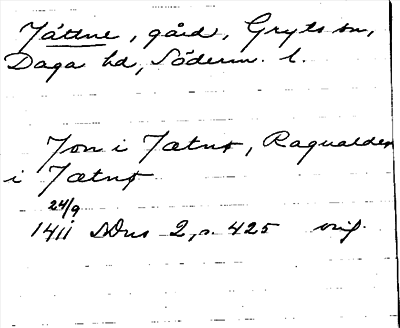 Jättne, gård, Gryts sn,
Daga hd, Söderm. l.
Jon i Jætnø, Ragualder
i Jætnø
24/9
1411 SDns 2, s. 425 orig.